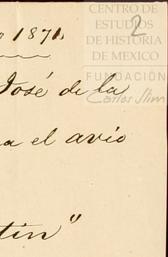 CENTRO DE
ESTUDIOS
DE HISTORIA
DE MEXICO
FUNDACIÓN
Carlos Slim
2
1871.
José de la
a el avío
tin"